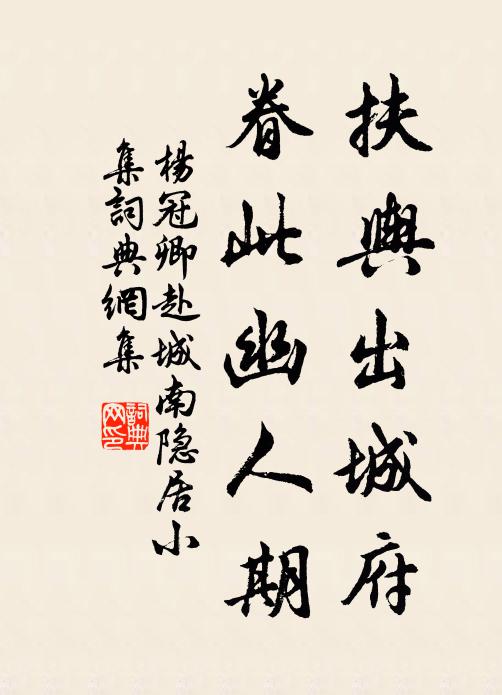 扶輿出城府
眷此幽人期
楊冠卿赴城南隐居小
集詞典網集
詞典网印